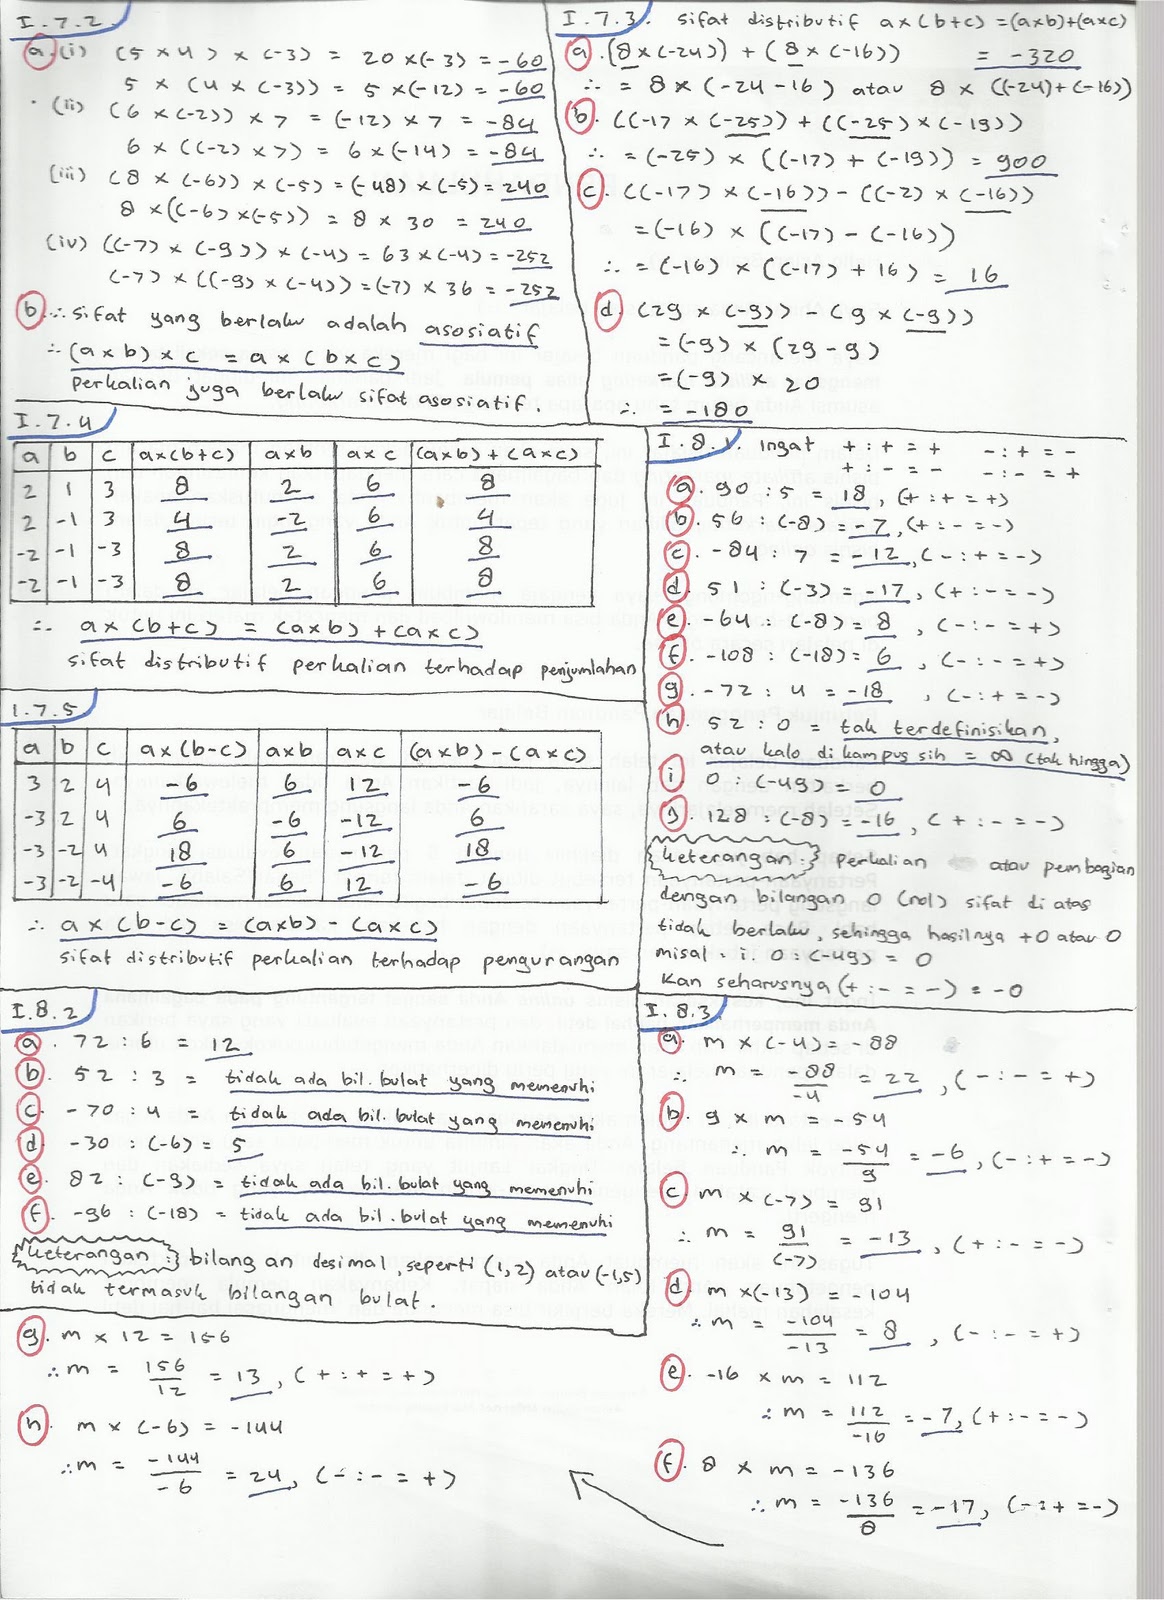 I.7.2
a.(i) (5 x 4) x (-3) = 20 x (-3) = -60
5 x (4 x (-3)) = 5 x (-12) = -60
(ii) (6 x (-2)) x 7 = (-12) x 7 = -84
6 x ((-2) x 7) = 6 x (-14) = -84
(iii) (8 x (-6)) x (-5) = (-48) x (-5) = 240
8 x ((-6) x (-5)) = 8 x 30 = 240
(iv) ((-7) x (-9)) x (-4) = 63 x (-4) = -252
(-7) x ((-9) x (-4)) = (-7) x 36 = -252
b. ∴ sifat yang berlaku adalah asosiatif
∴ (a x b) x c = a x (b x c)
perkalian juga berlaku sifat asosiatif.
I.7.3. sifat distributif a x (b+c) = (axb)+(axc)
a. (8 x (-24)) + (8 x (-16)) = -320
∴ = 8 x (-24 -16) atau 8 x ((-24)+(-16))
b. ((-17 x (-25)) + ((-25) x (-19))
∴ = (-25) x ((-17) + (-19)) = 900
c. ((-17) x (-16)) - ((-2) x (-16))
= (-16) x ((-17) - (-16))
∴ = (-16) x ((-17) + 16) = 16
d. (29 x (-9)) - (9 x (-9))
= (-9) x (29 - 9)
= (-9) x 20
∴ = -180
I.7.4
a b c ax(b+c) axb axc (axb)+(axc)
2 1 3 8 2 6 8
2 -1 3 4 -2 6 4
-2 -1 -3 8 2 6 8
-2 -1 -3 8 2 6 8
∴ ax(b+c) = (axb)+(axc)
sifat distributif perkalian terhadap penjumlahan
1.7.5
a b c ax(b-c) axb axc (axb)-(axc)
3 2 4 -6 6 12 -6
-3 2 4 6 -6 -12 6
-3 -2 4 18 6 -12 18
-3 -2 -4 -6 6 12 -6
∴ ax(b-c) = (axb)-(axc)
sifat distributif perkalian terhadap pengurangan
I.8.1. Ingat + : + = + - : + = -
+ : - = - - : - = +
a. 90 : 5 = 18, (+ : + = +)
b. 56 : (-8) = -7, (+ : - = -)
c. -84 : 7 = -12, (- : + = -)
d. 51 : (-3) = -17, (+ : - = -)
e. -64 : (-8) = 8, (- : - = +)
f. -108 : (-18) = 6, (- : - = +)
g. -72 : 4 = -18, (- : + = -)
h. 52 : 0 = tak terdefinisikan,
atau kalo di kampus sih = ∞ (tak hingga)
i. 0 : (-49) = 0
j. 128 : (-8) = -16, (+ : - = -)
Keterangan: perkalian atau pembagian
dengan bilangan 0 (nol) sifat di atas
tidak berlaku, sehingga hasilnya +0 atau 0
misal : i. 0 : (-49) = 0
Kan seharusnya (+ : - = -) = -0
I.8.2
a. 72 : 6 = 12
b. 52 : 3 = tidak ada bil. bulat yang memenuhi
c. -70 : 4 = tidak ada bil. bulat yang memenuhi
d. -30 : (-6) = 5
e. 82 : (-9) = tidak ada bil. bulat yang memenuhi
f. -96 : (-18) = tidak ada bil. bulat yang memenuhi
Keterangan: bilangan desimal, seperti (1,2) atau (-1,5)
tidak termasuk bilangan bulat.
I.8.3
a. m x (-4) = -88
∴ m = -88/-4 = 22, (- : - = +)
b. 9 x m = -54
∴ m = -54/9 = -6, (- : + = -)
c. m x (-7) = 91
∴ m = 91/(-7) = -13, (+ : - = -)
d. m x(-13) = -104
∴ m = -104/-13 = 8, (- : - = +)
e. -16 x m = 112
∴ m = 112/-16 = -7, (+ : - = -)
f. 8 x m = -136
∴ m = -136/8 = -17, (- : + = -)
g. m x 12 = 156
∴ m = 156/12 = 13, (+ : + = +)
h. m x (-6) = -144
∴ m = -144/-6 = 24, (- : - = +)